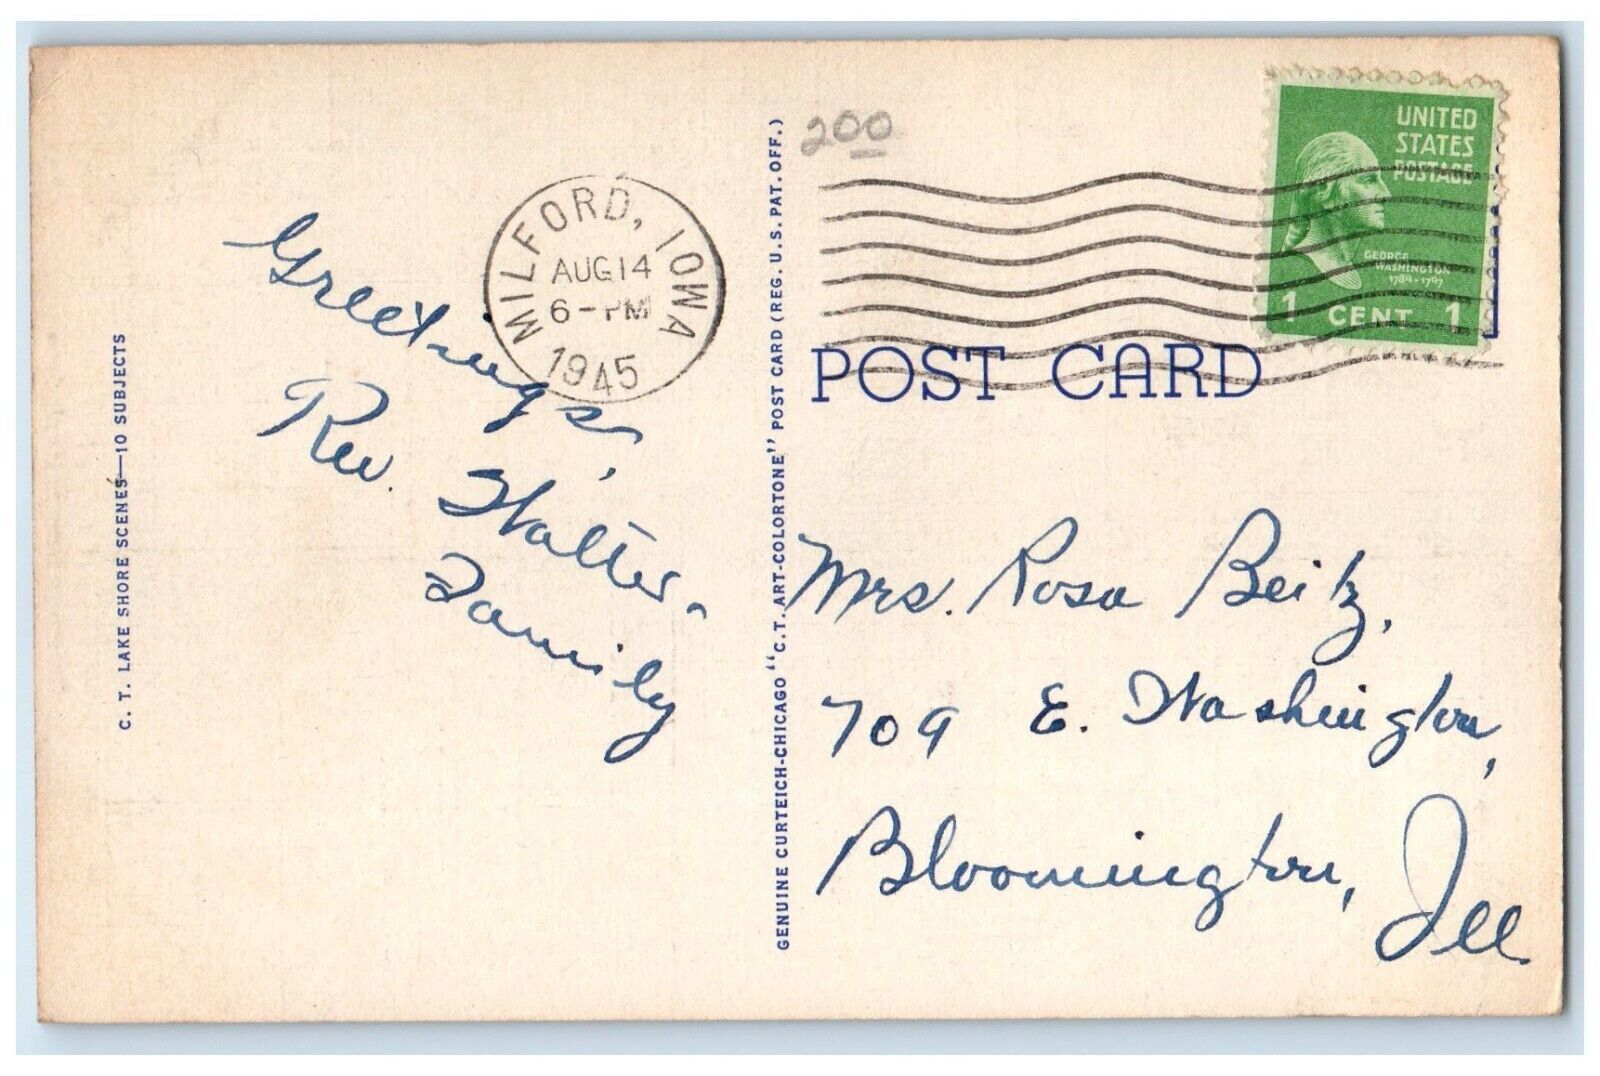 C. T. LAKE SHORE SCENES—10 SUBJECTS
Greetings,
Rev. Walter
Family
MILFORD, IOWA
AUG 14
6-PM
1945
GENUINE CURTEICH-CHICAGO "C.T. ART-COLORTONE" POST CARD (REG. U.S. PAT. OFF.)
200
UNITED
STATES
POSTAGE
GEORGE
WASHINGTON
1789-1797
1 CENT 1
POST CARD
Mrs. Rosa Beitz,
709 E. Washington,
Bloomington, Ill.